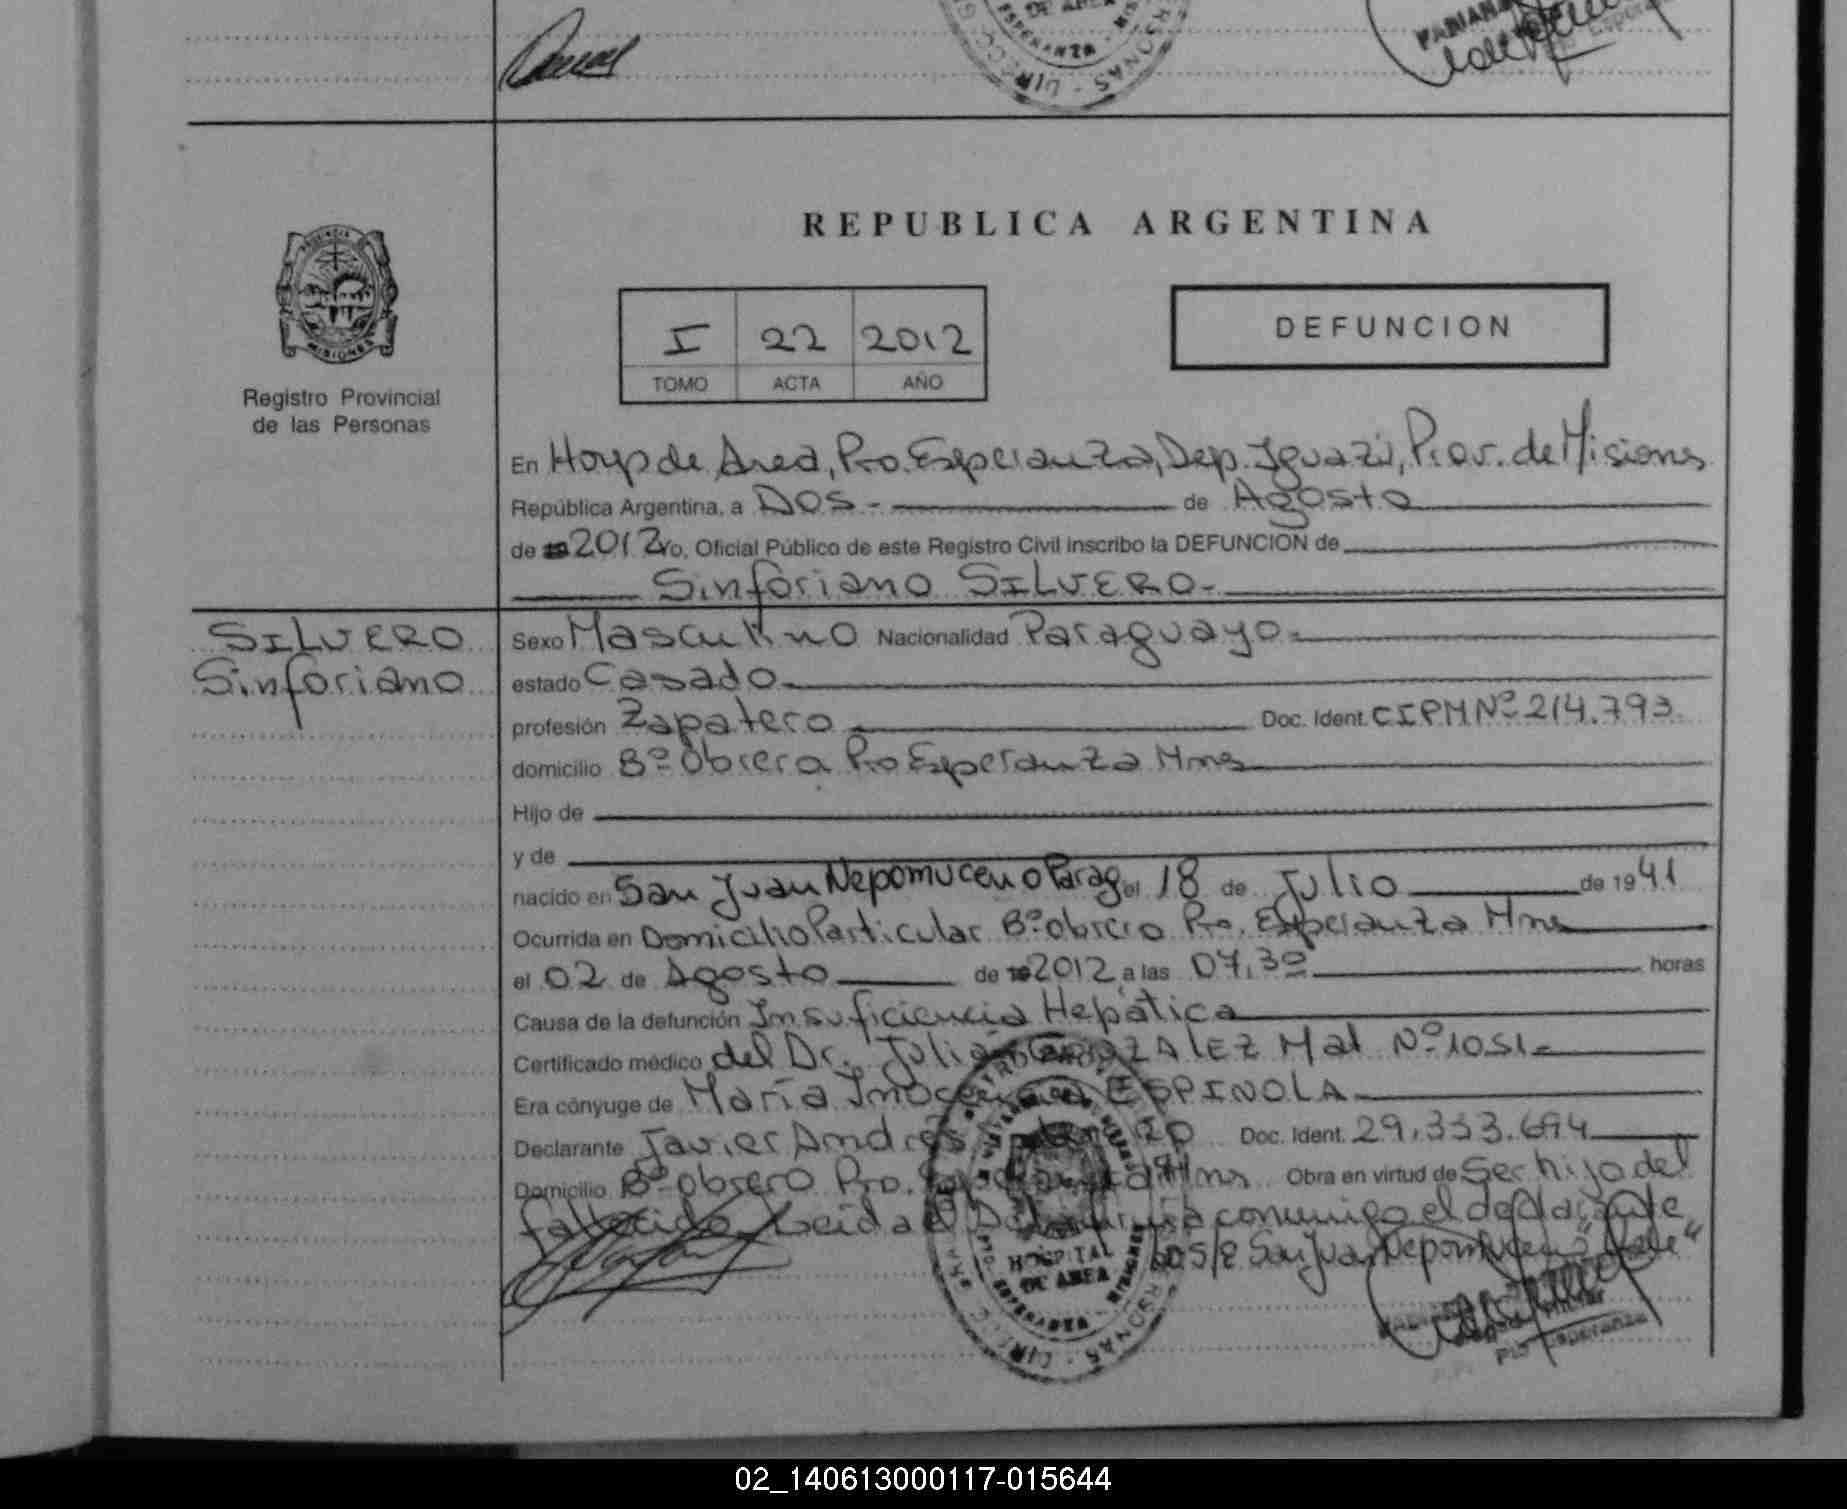 REPUBLICA ARGENTINA
PROVINCIA DE
MISIONES
Registro Provincial
de las Personas
I 22 2012
TOMO ACTA AÑO
DEFUNCION
En Hosp de Area, Pto. Esperanza, Dep. Iguazú, Prov. de Misiones
República Argentina, a Dos.- de Agosto
de 2012 Yo, Oficial Público de este Registro Civil inscribo la DEFUNCION de
Sinforiano SILVERO.-
SILVERO
Sinforiano
Sexo Masculino Nacionalidad Paraguayo.-
estado Casado.-
profesión Zapatero Doc. Ident. CIPM Nº 214.793.
domicilio Bº Obrera Pto Esperanza Mnes
Hijo de
y de
nacido en San Juan Nepomuceno Parag el 18 de Julio de 1941
Ocurrida en Domicilio Particular Bº obrero Pto. Esperanza Mnes
el 02 de Agosto de 2012 a las 07,30 horas
Causa de la defunción Insuficiencia Hepática
Certificado médico del Dr. Julian GONZALEZ Mat Nº 1051.-
Era cónyuge de María Inocencia ESPINOLA
Declarante Javier Andrés Doc. Ident. 29.333.694
Domicilio Bº obrero Pto. Esperanza Mnes Obra en virtud de Ser hijo del
fallecido. Leida el conmigo el declarante
S/R San Juan Nepomuceno "Vale"
HOSPITAL
DE AREA
ESPERANZA
Pto Esperanza
02_140613000117-015644